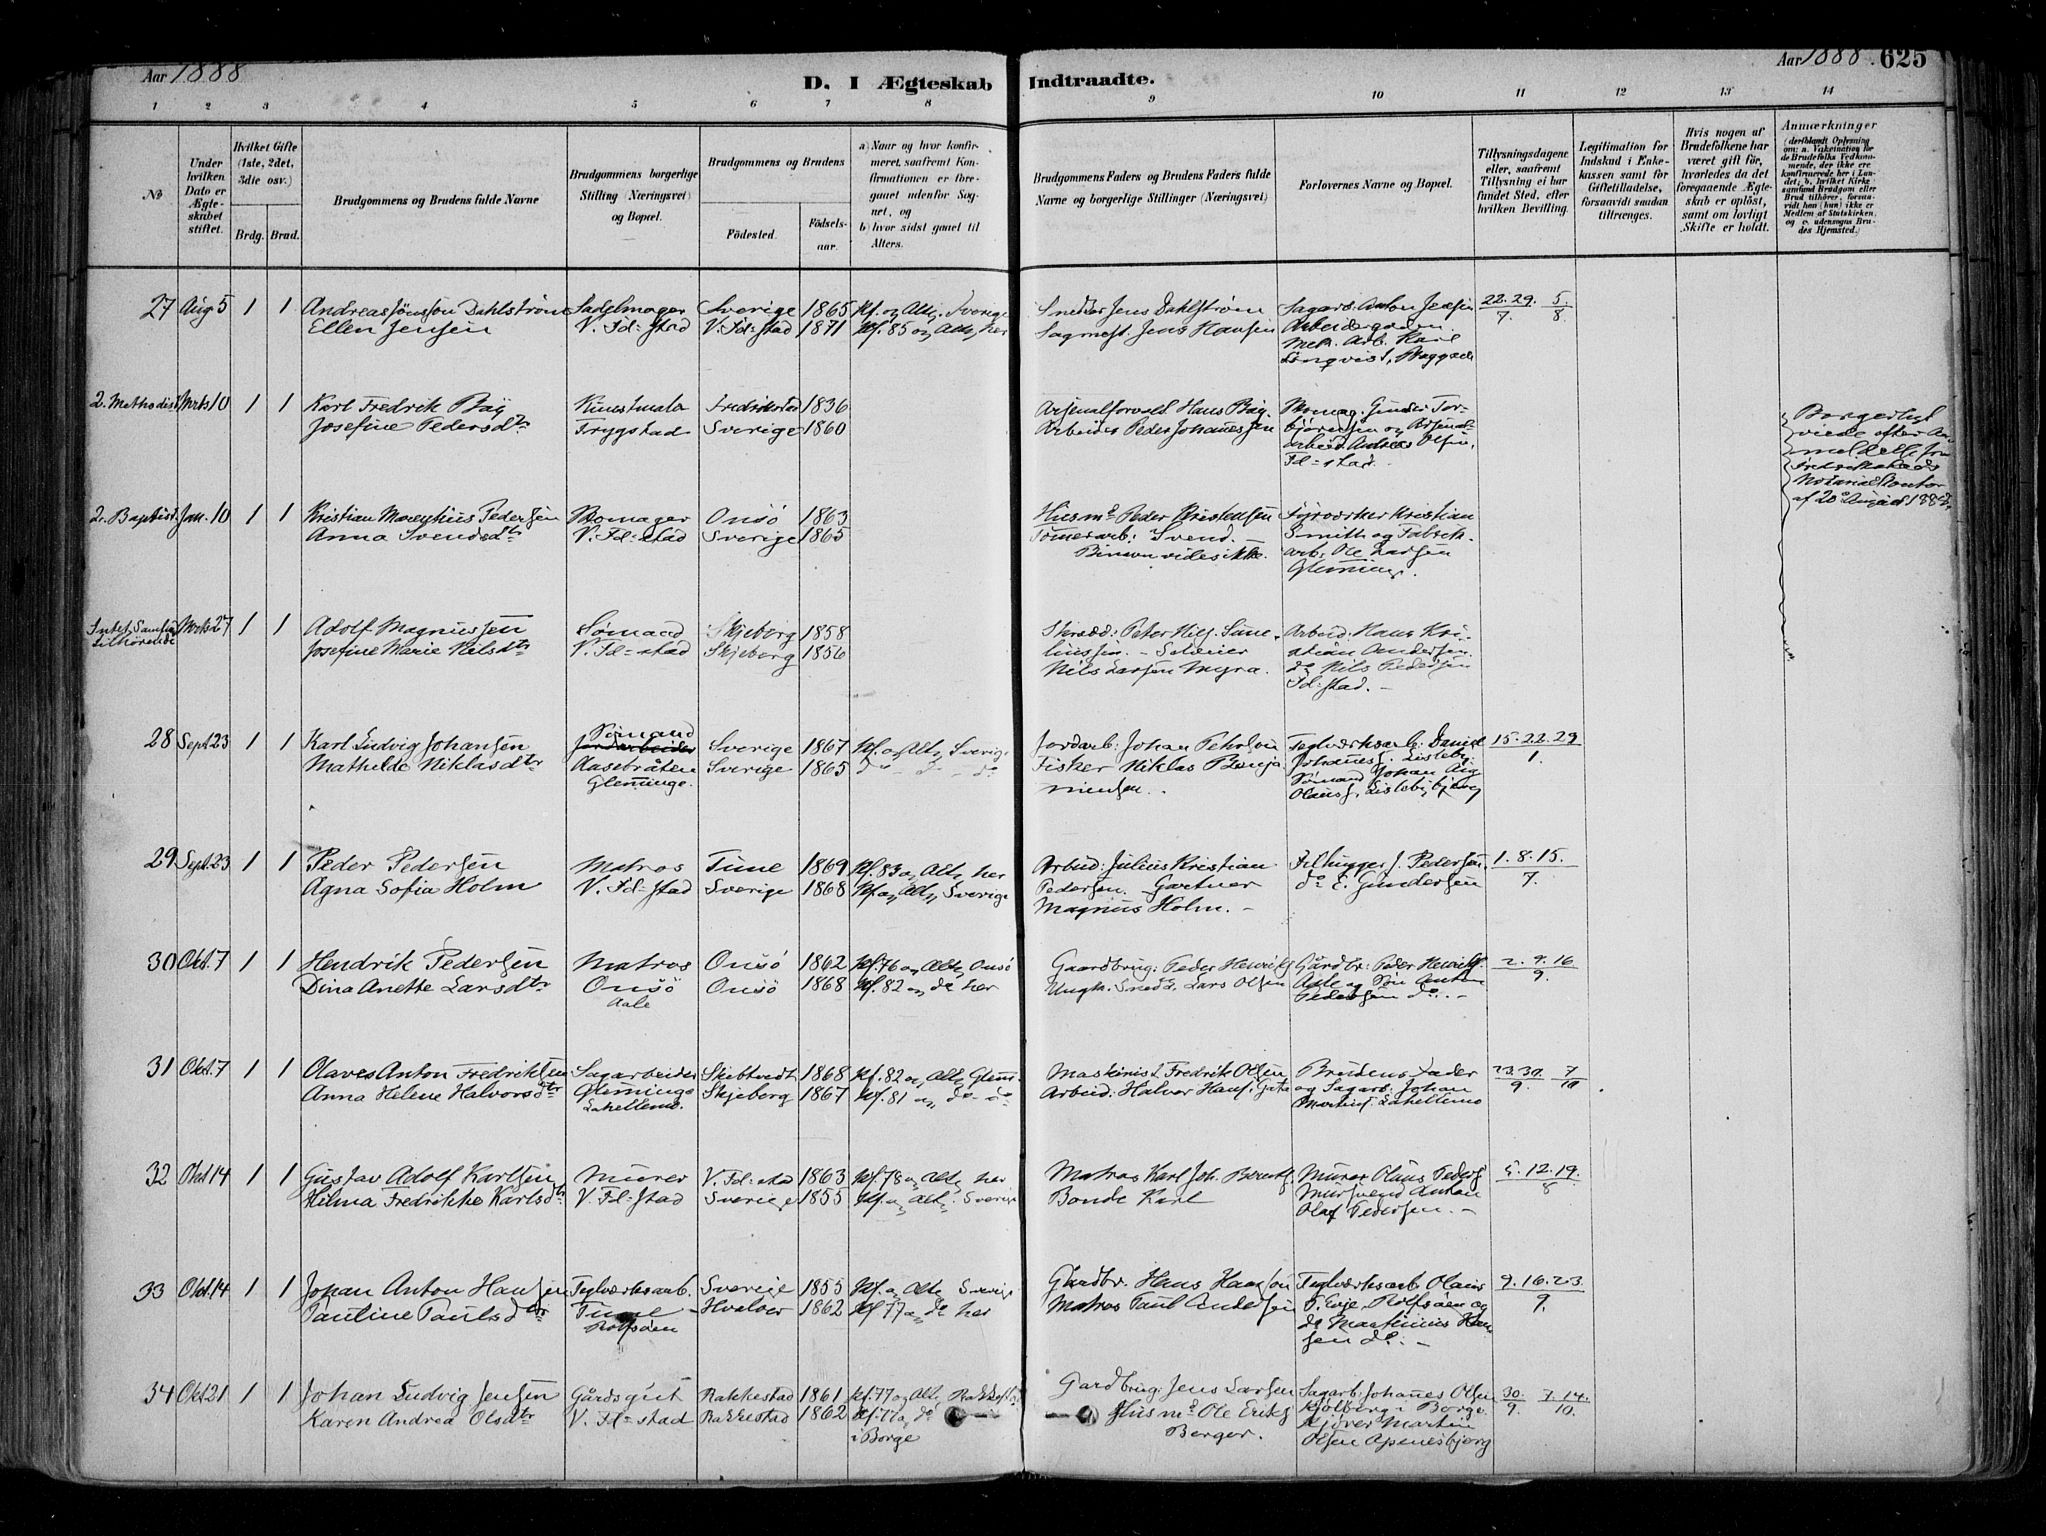 Aar 1888
D. I Ægteskab Indtraadte.
Aar 1888. 625
1 2 3 4 5 6 7 8 9 10 11 12 13 14
No
Under hvilken Dato er Ægteskabet stiftet.
Hvilket Gifte (1ste, 2det, 3die osv.)
Brdg. Brud.
Brudgommens og Brudens fulde Navne
Brudgommens borgerlige Stilling (Næringsvei) og Bopæl.
Brudgommens og Brudens
Födested. Födselsaar.
a) Naar og hvor konfirmeret, saafremt Konfirmationen er foregaaet udenfor Sognet, og
b) hvor sidst gaaet til Alters.
Brudgommens Faders og Brudens Faders fulde Navne og borgerlige Stillinger (Næringsvei)
Forlovernes Navne og Bopæl.
Tillysningsdagene eller, saafremt Tillysning ei har fundet Sted, efter hvilken Bevilling.
Legitimation for Indskud i Enkekassen samt for Giftetilladelse, forsaavidt saadan tiltrænges.
Hvis nogen af Brudefolkene har været gift för, hvorledes da det foregaaende Ægteskab er oplöst, samt om lovligt Skifte er holdt.
Anmærkninger
27 Aug 5 1 1 Andreas Jönsson Dahlström Sadelmager Sverige 1865 Kf. og Alt. Sverige Snedker Jens Dahlström Sagarb. Anton Jensen 22. 29. 5
Ellen Jensen V. Fd=stad V. Fd=stad 1871 Kf. 85 og Alt. her Sagmest. Jens Hansen Arbeidergaden. 7. 8.
Mek. Arb. Karl
2. Methodist Mrts 10 1 1 Karl Fredrik Bög Fredrikstad 1836 Arsenalforvalt Hans Bög. Skomag. Gunder Tor-
Josefine Pedersdtr Trygstad Sverige 1860 Arbeider Peder Johanessen björnsen og Arsenal-
arbeid. Andreas Olsen,
Fd=stad.
Borgerligt
viede efter An-
meldelse fra
Fredrikstads
Notarialkontor
af 20de August 1888.
2. Baptist. Jan. 10 1 1 Kristian Pedersen Skomager Onsö 1863 Husmd Peder Kristensen Fyrværker Kristian
Anna Svendsdtr V. Fd=stad Sverige 1865 Tömerarb. Svend. – Smith og Fabrik-
vides ikke. arb. Ole Larsen
Glemminge.
Intet Samfund Mrts 27 1 1 Adolf Magnussen Sömand Skjeberg 1858 Arbeid: Hans Kri-
tilhörende Josefine Marie Nilsdtr V. Fd=stad Skjeberg 1856 stian Andersen.
Nils Larsen Myra. do Nils Pedersen
Fd=stad. –
Sömand
28 Sept 23 1 1 Karl Ludvig Johansen Jordarbeider Sverige 1867 Kf. og Alt. Sverige Jordarb: Johan Teglværksarb. Daniel 15. 22. 29
Mathilde Niklasdtr Aasebråten Sverige 1865 do – do – do Fisker Niklas Benja- Johanes. Lisleby. 1.
Glemminge. minsen. Sömand Johan Aug
29 Sept. 23 1 1 Peder Pedersen Matros Tune 1869 Kf. 83 og Alt. her Arbeid: Julius Kristian Filhugger J. Pedersen. 1. 8. 15.
Agna Sofia Holm V. Fd=stad Sverige 1868 Kf. og Alt. Sverige Pedersen. Gartner do E. Gundersen 7.
Magnus Holm. –
30 Okt. 7 1 1 Hendrik Pedersen Matros Onsö 1862 Kf. 76 og Alt. Onsö Gaardbrug: Peder Henriks Gårdbr: Peder Henriks. 2. 9. 16
Dina Anette Larsdtr Onsö Onsö 1868 Kf. 82 og do her Ungk. Smed. Lars Olsen Aale og Sön Anton 9.
Aale Pedersen do. –
31 Okt. 7 1 1 Olaves Anton Fredriksen Sagarbeider Skibtvedt 1868 Kf. 82 og Alt. Glem. Maskinist Fredrik Olsen Brudens Fader 23. 30. 7
Anna Helene Halvorsdtr Glemminge Skjeberg 1867 Kf. 81 og do do Arbeid: Halvor Hans. og Sagarb: Johan 9. 10.
32 Okt 14 1 1 Gustav Adolf Karlsen Murer V. Fd=stad 1863 Kf. 78 og Alt. her Matros Karl Joh. Murer Olaus Peders 5. 12. 19.
Hilma Fredrikke Karlsdtr V. Fd=stad Sverige 1855 Kf. og Alt. Sverige Bonde Karl Mursvend Anton 8
Olaf Pedersen. –
33 Okt. 14 1 1 Johan Anton Hansen Teglværksarb. Sverige 1855 Kf. og Alt. Sverige Gårdbr. Hans Hansson Teglværksarb Olaus 9. 16. 23
Pauline Paulsdtr Tune Hvaler 1862 Kf 77 og do her Matros Paul Andersen T. Evje, Rolfsöen og 9.
Rolfsöen do Martinius Han-
sen do. –
34 Okt 21 1 1 Johan Ludvig Jensen Gårdsgut Rakkestad 1861 Kf. 77 og Alt. Rakkest. Gardbrug: Jens Larsen Sagarb: Johanes Olsen 30. 7. 14.
Karen Andrea Olsdtr V. Fd=stad Rakkestad 1862 Kf. 77 og do Husmd Ole Eriks Kjölberg i Borge 9. 10.
i Borge Berger. Kjörer Martin
Olsen Apenesbjerg